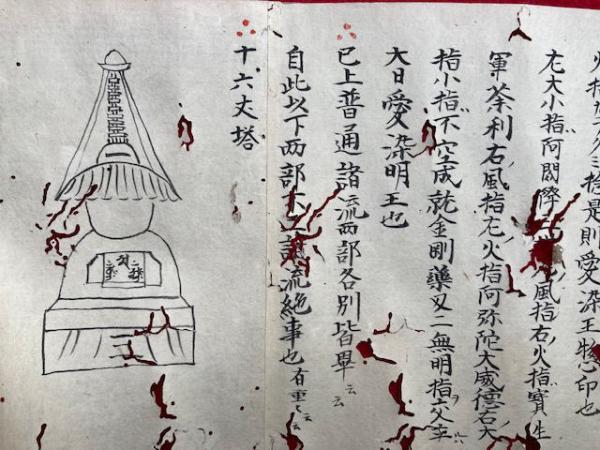 捻是則愛染王惣印也
左大小指阿閦降三風指右火指寶生
軍荼利右風指左火指阿弥陀大威德右大
指小指不空成就金剛藥叉二無明指交
大日愛染明王也
已上普通諸流两部各別皆畢云云
自此以下两部不二諸流絶事也有重々云云
十六丈塔